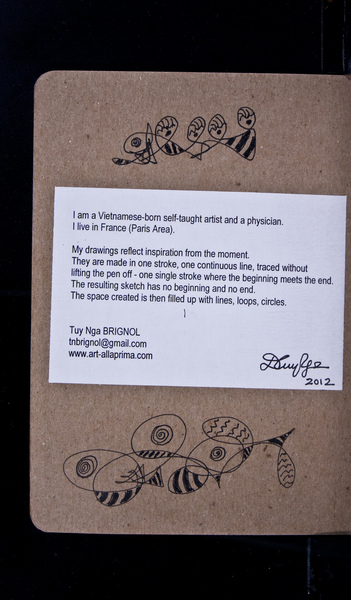 I am a Vietnamese-born self-taught artist and a physician.
I live in France (Paris Area).
My drawings reflect inspiration from the moment.
They are made in one stroke, one continuous line, traced without
lifting the pen off - one single stroke where the beginning meets the end.
The resulting sketch has no beginning and no end.
The space created is then filled up with lines, loops, circles.
Tuy Nga BRIGNOL
tnbrignol@gmail.com
www.art-allaprima.com
2012